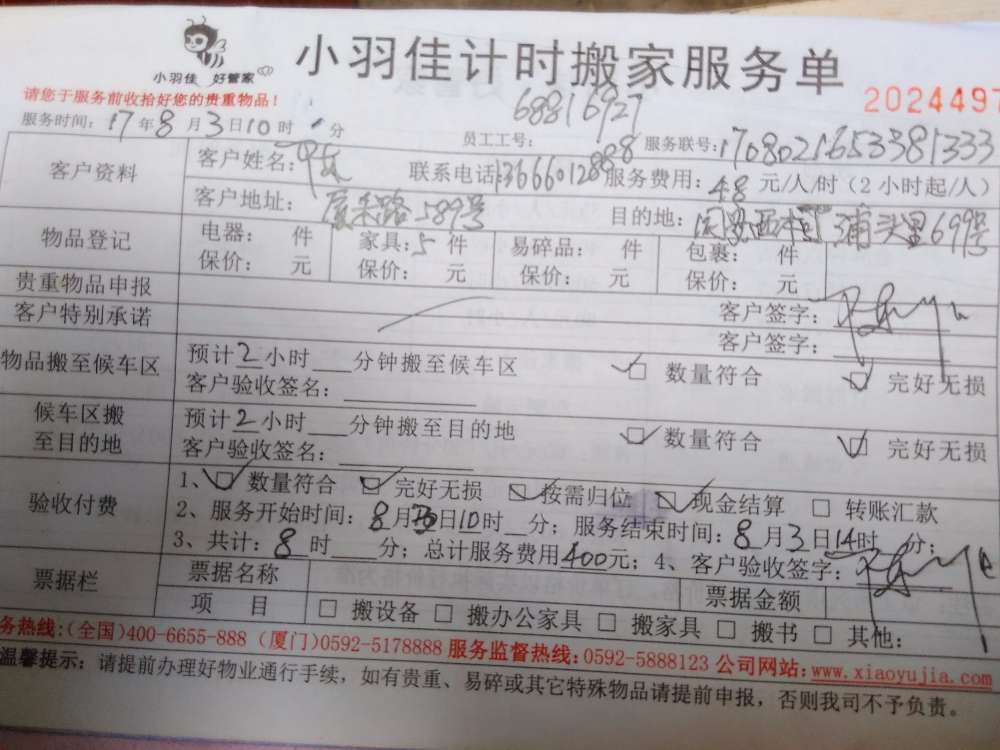 小羽佳 好管家
小羽佳计时搬家服务单
请您于服务前收拾好您的贵重物品！
68816927
2024497
服务时间：17年8月3日10时 分
员工工号：
服务联号：1708021653381333
客户资料
客户姓名：
联系电话：13666012888
服务费用：48元/人/时（2小时起/人）
客户地址： 厦禾路589号
目的地： 浦头里699号
物品登记
电器： 件 家具：5件 易碎品： 件 包裹： 件
保价： 元 保价： 元 保价： 元 保价： 元
贵重物品申报
客户签字：
客户特别承诺
客户签字：
物品搬至候车区
预计2小时___分钟搬至候车区 数量符合 完好无损
客户验收签名：
候车区搬
至目的地
预计2小时___分钟搬至目的地 数量符合 完好无损
客户验收签名：
验收付费
1、数量符合 完好无损 按需归位 现金结算 转账汇款
2、服务开始时间：8月 日10时__分；服务结束时间：8月3日14时 分；
3、共计：8时___分；总计服务费用400元；4、客户验收签字：
票据栏
票据名称 票据金额
项 目 搬设备 搬办公家具 搬家具 搬书 其他：
务热线：(全国)400-6655-888（厦门)0592-5178888 服务监督热线：0592-5888123 公司网站：www.xiaoyujia.com
温馨提示：请提前办理好物业通行手续，如有贵重、易碎或其它特殊物品请提前申报，否则我司不予负责。